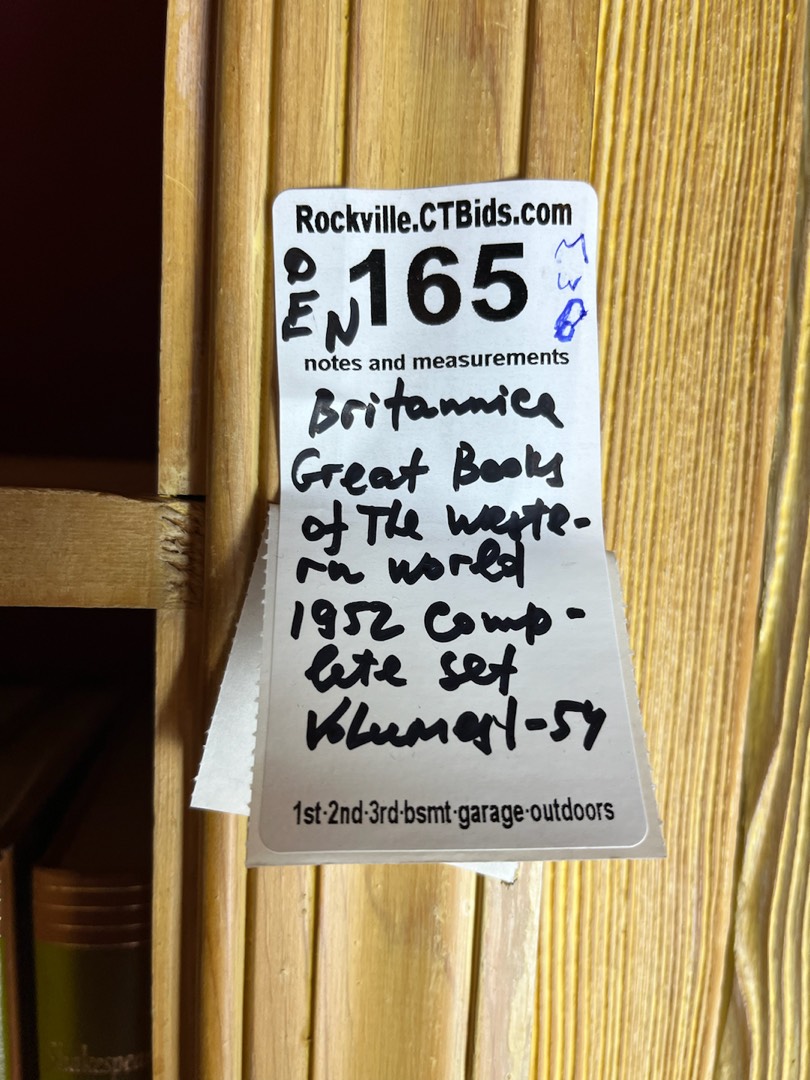 Rockville.CTBids.com
DEN 165 MWB
notes and measurements
Britannica
Great Books
of The weste-
rn world
1952 comp-
lete set
Volumes 1-54
1st·2nd·3rd·bsmt·garage·outdoors
Shakespea